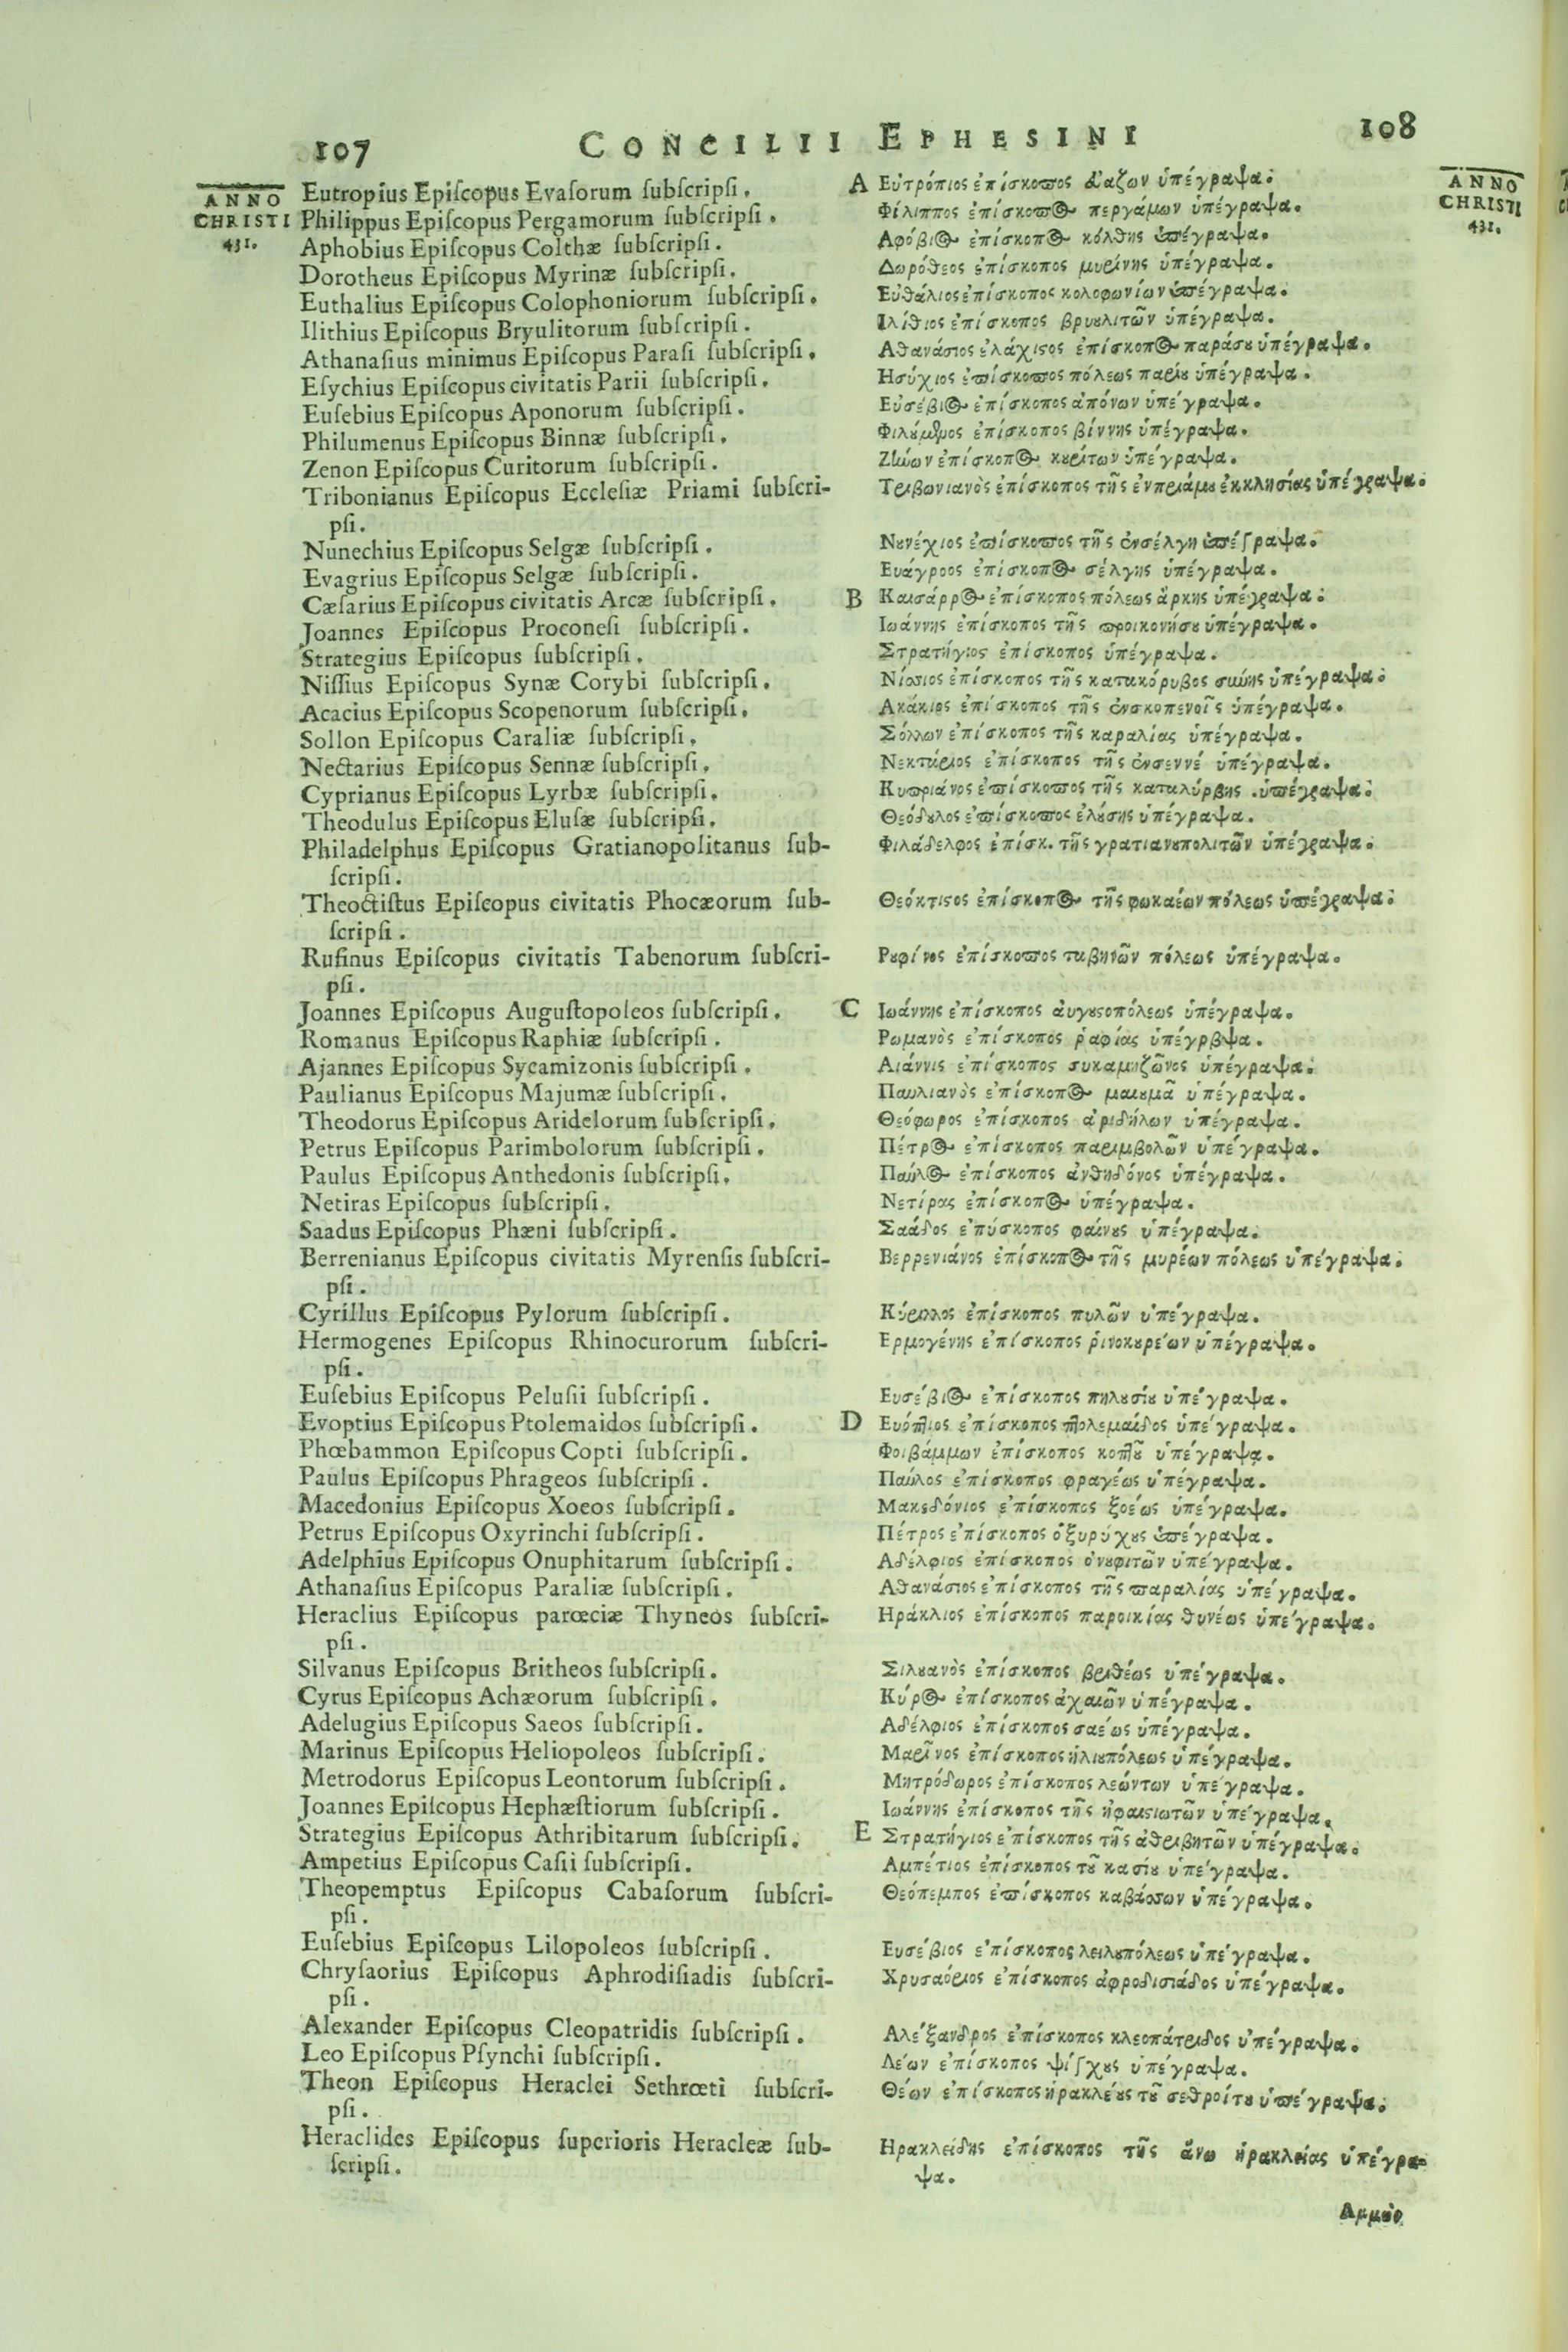 107
CONCILII EPHESINI
108
ANNO
CHRISTI
431.
Eutropius Epiſcopus Evaſorum ſubſcripſi.
Philippus Epiſcopus Pergamorum ſubſcripſi.
Aphobius Epiſcopus Colthæ ſubſcripſi.
Dorotheus Epiſcopus Myrinæ ſubſcripſi.
Euthalius Epiſcopus Colophoniorum ſubſcripſi.
Ilithius Epiſcopus Bryulitorum ſubſcripſi.
Athanaſius minimus Epiſcopus Paraſi ſubſcripſi.
Eſychius Epiſcopus civitatis Parii ſubſcripſi.
Euſebius Epiſcopus Aponorum ſubſcripſi.
Philumenus Epiſcopus Binnæ ſubſcripſi.
Zenon Epiſcopus Curitorum ſubſcripſi.
Tribonianus Epiſcopus Eccleſiæ Priami ſubſcri-
pſi.
Nunechius Epiſcopus Selgæ ſubſcripſi.
Evagrius Epiſcopus Selgæ ſubſcripſi.
Cæſarius Epiſcopus civitatis Arcæ ſubſcripſi.
Joannes Epiſcopus Proconeſi ſubſcripſi.
Strategius Epiſcopus ſubſcripſi.
Niſſius Epiſcopus Synæ Corybi ſubſcripſi.
Acacius Epiſcopus Scopenorum ſubſcripſi.
Sollon Epiſcopus Caraliæ ſubſcripſi.
Nectarius Epiſcopus Sennæ ſubſcripſi.
Cyprianus Epiſcopus Lyrbæ ſubſcripſi.
Theodulus Epiſcopus Eluſæ ſubſcripſi.
Philadelphus Epiſcopus Gratianopolitanus ſub-
ſcripſi.
Theoctiſtus Epiſcopus civitatis Phocæorum ſub-
ſcripſi.
Rufinus Epiſcopus civitatis Tabenorum ſubſcri-
pſi.
Joannes Epiſcopus Auguſtopoleos ſubſcripſi.
Romanus Epiſcopus Raphiæ ſubſcripſi.
Ajannes Epiſcopus Sycamizonis ſubſcripſi.
Paulianus Epiſcopus Majumæ ſubſcripſi.
Theodorus Epiſcopus Aridelorum ſubſcripſi.
Petrus Epiſcopus Parimbolorum ſubſcripſi.
Paulus Epiſcopus Anthedonis ſubſcripſi.
Netiras Epiſcopus ſubſcripſi.
Saadus Epiſcopus Phæni ſubſcripſi.
Berrenianus Epiſcopus civitatis Myrenſis ſubſcri-
pſi.
Cyrillus Epiſcopus Pylorum ſubſcripſi.
Hermogenes Epiſcopus Rhinocurorum ſubſcri-
pſi.
Euſebius Epiſcopus Peluſii ſubſcripſi.
Evoptius Epiſcopus Ptolemaidos ſubſcripſi.
Phœbammon Epiſcopus Copti ſubſcripſi.
Paulus Epiſcopus Phrageos ſubſcripſi.
Macedonius Epiſcopus Xoeos ſubſcripſi.
Petrus Epiſcopus Oxyrinchi ſubſcripſi.
Adelphius Epiſcopus Onuphitarum ſubſcripſi.
Athanaſius Epiſcopus Paraliæ ſubſcripſi.
Heraclius Epiſcopus parœciæ Thyneos ſubſcri-
pſi.
Silvanus Epiſcopus Britheos ſubſcripſi.
Cyrus Epiſcopus Achæorum ſubſcripſi.
Adelugius Epiſcopus Saeos ſubſcripſi.
Marinus Epiſcopus Heliopoleos ſubſcripſi.
Metrodorus Epiſcopus Leontorum ſubſcripſi.
Joannes Epiſcopus Hephæſtiorum ſubſcripſi.
Strategius Epiſcopus Athribitarum ſubſcripſi.
Ampetius Epiſcopus Caſii ſubſcripſi.
Theopemptus Epiſcopus Cabaſorum ſubſcri-
pſi.
Euſebius Epiſcopus Lilopoleos ſubſcripſi.
Chryſaorius Epiſcopus Aphrodiſiadis ſubſcri-
pſi.
Alexander Epiſcopus Cleopatridis ſubſcripſi.
Leo Epiſcopus Pſynchi ſubſcripſi.
Theon Epiſcopus Heraclei Sethrœti ſubſcri-
pſi.
Heraclides Epiſcopus ſuperioris Heracleæ ſub-
ſcripſi.
A
B
C
D
E
Εὐτρόπιος ἐπίσκοπος ἀαζων ὑπέγραψα.
Φίλιππος ἐπίσκοπος περγάμων ὑπέγραψα.
Αφόβιος ἐπίσκοπος κόλθης ὑπέγραψα.
Δωρόθεος ἐπίσκοπος μυρίνης ὑπέγραψα.
Εὐθάλιος ἐπίσκοπος κολοφωνίων ὑπέγραψα.
Ιλίθιος ἐπίσκοπος βρυυλιτῶν ὑπέγραψα.
Αθανάσιος ἐλάχιστος ἐπίσκοπος παράσου ὑπέγραψα.
Ησύχιος ἐπίσκοπος πόλεως παρίου ὑπέγραψα.
Εὐσέβιος ἐπίσκοπος ἀπόνων ὑπέγραψα.
Φιλούμενος ἐπίσκοπος βίννης ὑπέγραψα.
Ζήνων ἐπίσκοπος κουρίτων ὑπέγραψα.
Τριβωνιανὸς ἐπίσκοπος τῆς ἐνπριάμου ἐκκλησίας ὑπέγραψα.
Νουνέχιος ἐπίσκοπος τῆς ἐνσέλγη ὑπέγραψα.
Ευάγροος ἐπίσκοπος σέλγης ὑπέγραψα.
Καισάρρος ἐπίσκοπος πόλεως ἄρκης ὑπέγραψα.
Ιωάννης ἐπίσκοπος τῆς προικονήσου ὑπέγραψα.
Στρατήγιος ἐπίσκοπος ὑπέγραψα.
Νίσσιος ἐπίσκοπος τῆς κατακόρυβος συνῆς ὑπέγραψα.
Ακάκιος ἐπίσκοπος τῆς ἐνσκοπενοῖς ὑπέγραψα.
Σόλλων ἐπίσκοπος τῆς καραλίας ὑπέγραψα.
Νεκτάριος ἐπίσκοπος τῆς ἐνσεννέ ὑπέγραψα.
Κυπριάνος ἐπίσκοπος τῆς καταλύρβης .ὑπέγραψα.
Θεόδουλος ἐπίσκοπος ἐλούσης ὑπέγραψα.
Φιλάδελφος ἐπίσκ. τῆς γρατιανουπολιτῶν ὑπέγραψα.
Θεόκτιστος ἐπίσκοπος τῆς φωκαέων πόλεως ὑπέγραψα.
Ρουφίνος ἐπίσκοπος ταβηνῶν πόλεως ὑπέγραψα.
Ιωάννης ἐπίσκοπος ἀυγουστοπόλεως ὑπέγραψα.
Ρωμανὸς ἐπίσκοπος ῥαφίας ὑπέγρβψα.
Αιάννις ἐπίσκοπος συκαμηζῶνος ὑπέγραψα.
Παυλιανὸς ἐπίσκοπος μαιουμᾶ ὑπέγραψα.
Θεόφωρος ἐπίσκοπος ἀριδήλων ὑπέγραψα.
Πέτρος ἐπίσκοπος παριμβολῶν ὑπέγραψα.
Παύλος ἐπίσκοπος ἀνθηδόνος ὑπέγραψα.
Νετίρας ἐπίσκοπος ὑπέγραψα.
Σαάδος ἐπύσκοπος φαίνους ὑπέγραψα.
Βερρενιάνος ἐπίσκοπος τῆς μυρέων πόλεως ὑπέγραψα.
Κύριλλος ἐπίσκοπος πυλῶν ὑπέγραψα.
Ερμογένης ἐπίσκοπος ῥινοκουρείων ὑπέγραψα.
Ευσέβιος ἐπίσκοπος πηλουσίου ὑπέγραψα.
Ευόπτιος ἐπίσκοπος πτολεμαίδος ὑπέγραψα.
Φοιβάμμων ἐπίσκοπος κοπτοῦ ὑπέγραψα.
Παύλος ἐπίσκοπος φραγέως ὑπέγραψα.
Μακεδόνιος ἐπίσκοπος ξοέως ὑπέγραψα.
Πέτρος ἐπίσκοπος ὀξυρύχους ὑπέγραψα.
Αδέλφιος ἐπίσκοπος ὀνουφιτῶν ὑπέγραψα.
Αθανάσιος ἐπίσκοπος τῆς παραλίας ὑπέγραψα.
Ηράκλιος ἐπίσκοπος παροικίας θυνέως ὑπέγραψα.
Σιλουανὸς ἐπίσκοπος βριθέως ὑπέγραψα.
Κύρος ἐπίσκοπος ἀχαιῶν ὑπέγραψα.
Αδέλφιος ἐπίσκοπος σαέως ὑπέγραψα.
Μαρῖνος ἐπίσκοπος ἡλιουπόλεως ὑπέγραψα.
Μητρόδωρος ἐπίσκοπος λεώντων ὑπέγραψα.
Ιωάννης ἐπίσκοπος τῆς ἡφαιστιωτῶν ὑπέγραψα.
Στρατήγιος ἐπίσκοπος τῆς ἀθριβητῶν ὑπέγραψα.
Αμπέτιος ἐπίσκοπος τοῦ κασίου ὑπέγραψα.
Θεόπεμπος ἐπίσκοπος καβάσσων ὑπέγραψα.
Ευσέβιος ἐπίσκοπος λειλουπόλεως ὑπέγραψα.
Χρυσαόριος ἐπίσκοπος ἀφροδισιάδος ὑπέγραψα.
Αλέξανδρος ἐπίσκοπος κλεοπάτριδος ὑπέγραψα.
Λέων ἐπίσκοπος ψίγχους ὑπέγραψα.
Θέων ἐπίσκοπος ἡρακλέους τοῦ σεθροίτου ὑπέγραψα.
Ηρακλείδης ἐπίσκοπος τῆς ἄνω ἡρακλείας ὑπέγρα-
ψα.
ANNO
CHRISTI
431.